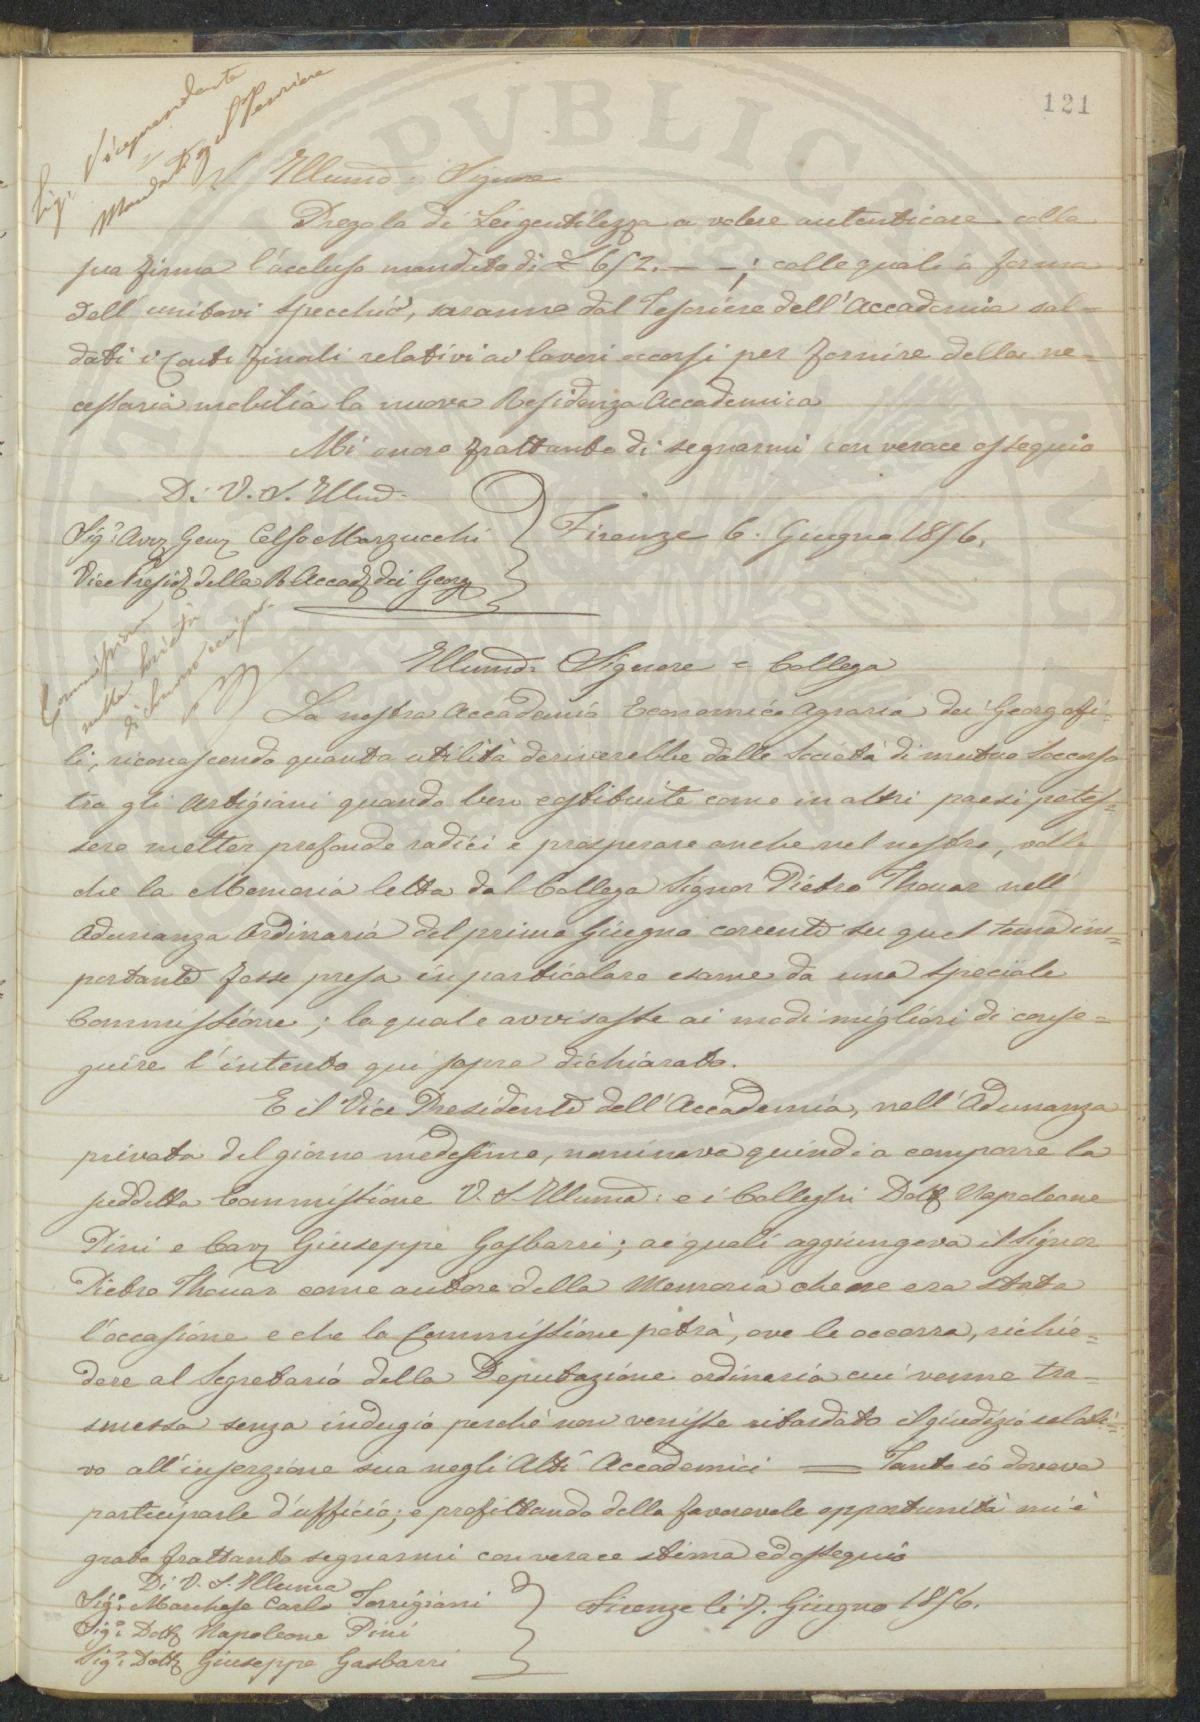 121
Sig.r Vicepresidente
Mandato pel Tesoriere
Illumo. Signore
Prego la di Lei gentilezza a volere autenticare colla
sua firma l'accluso mandato di £ 652. — — ; colle quali a forma
dell' unitovi specchio, saranno dal Tesoriere dell'Accademia sal=
dati i Conti finali relativi ai lavori occorsi per fornire della ne=
cessaria mobilia la nuova Residenza Accademica
Mi onoro frattanto di segnarmi con verace ossequio
Di V. S. Illma
Sig.r Avv Gen Celso Marzucchi
Vice Presid della R Accad dei Georg
Firenze 6. Giugno 1856.
Commissione
sulla Società
di mutuo soccorso
Illumo. Signore = Collega
La nostra Accademia Economico Agraria dei Georgofi=
li, riconoscendo quanta utilità deriverebbe dalle Società di mutuo Soccorso
tra gli Artigiani quando ben costituite come in altri paesi potes=
sero metter profonde radici e prosperare anche nel nostro, volle
che la Memoria letta dal Collega Signor Pietro Thouar nell'
Adunanza Ordinaria del primo Giugno corrente su quel tema im=
portante fosse presa in particolare esame da una Speciale
Commissione; la quale avvisasse ai modi migliori di conse=
guire l'intento qui sopra dichiarato.
E il Vice Presidente dell'Accademia, nell'Adunanza
privata del giorno medesimo, nominava quindi a comporre la
suddetta Commissione V. S. Illuma: e i Colleghi Dott Napoleone
Pini e Cav Giuseppe Gasbarri; ai quali aggiungeva il Signor
Pietro Thouar come autore della Memoria che ne era stata
l'occasione e che la Commissione potrà, ove le occorra, richie=
dere al Segretario della Deputazione ordinaria cui venne tra=
smessa senza indugio perchè non venisse ritardato il giudizio relati=
vo all'inserzione sua negli Atti Accademici — Tanto io doveva
participarle d'ufficio; e profittando della favorevole opportunità mi è
grato frattanto segnarmi con verace stima ed ossequio
Di V. S. Illuma
Sig.r Marchese Carlo Torrigiani
Sig.r Dott Napoleone Pini
Sig.r Dott Giuseppe Gasbarri
Firenze li 7. Giugno 1856.